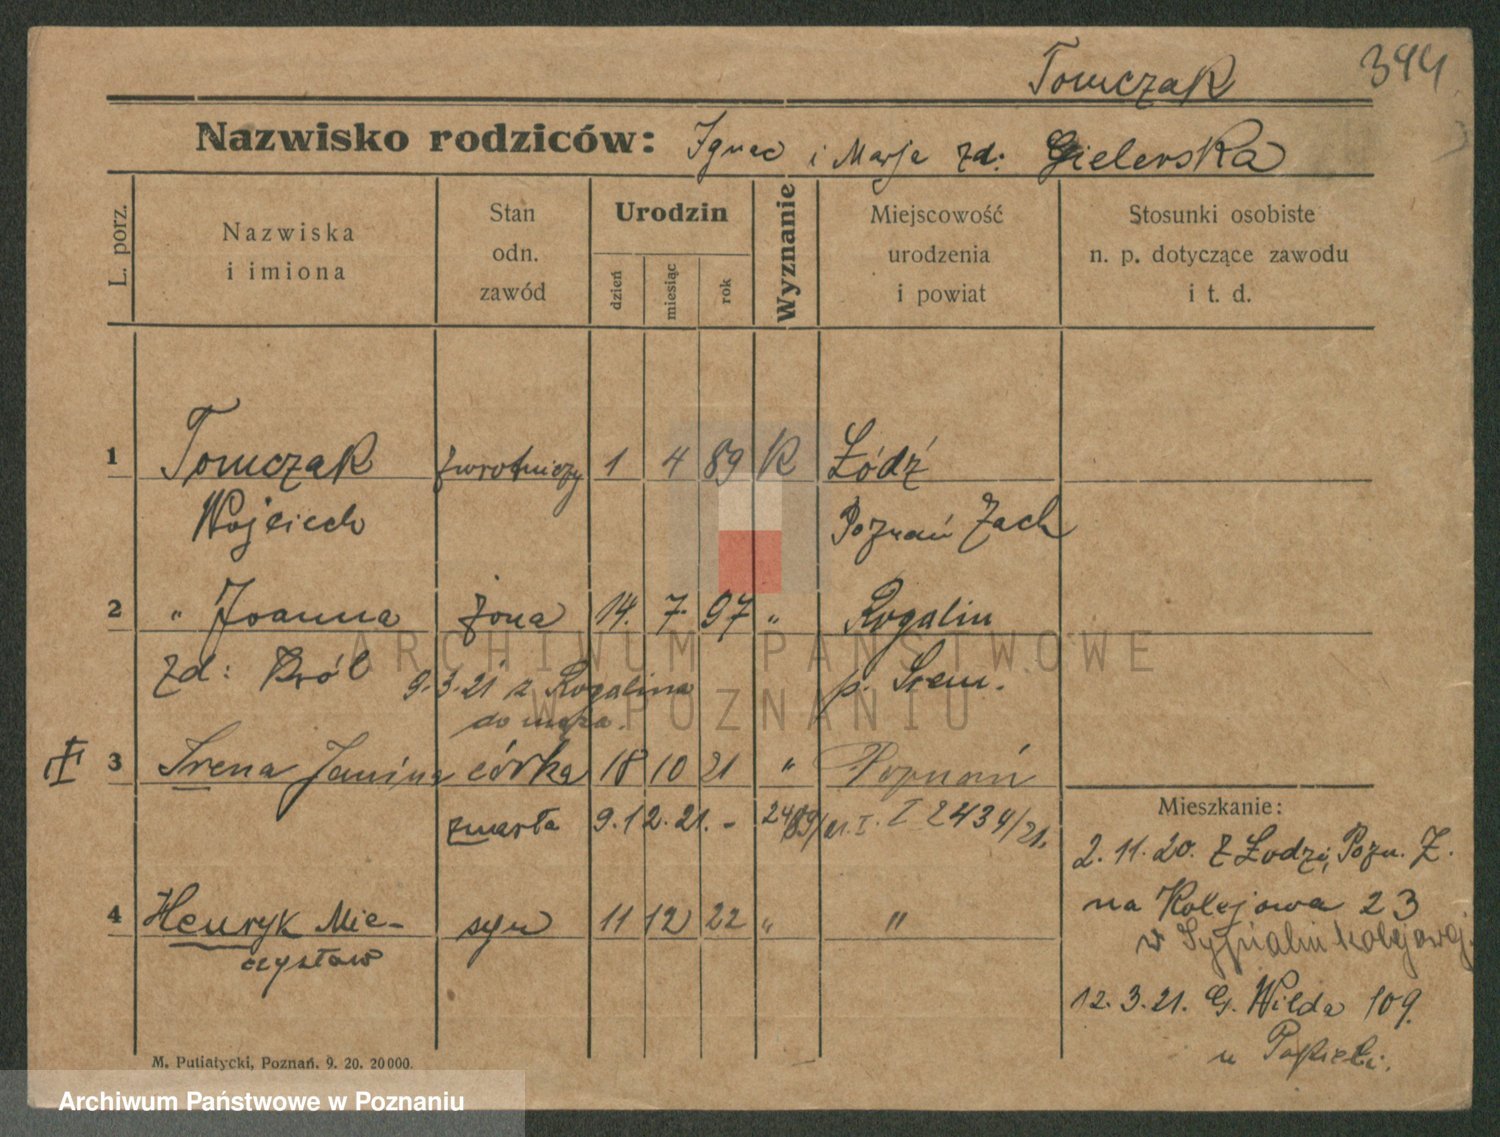 Tomczak 344
Nazwisko rodziców: Ignac i Marja zd: Gielerska
L. porz.
Nazwiska i imiona
Stan odn. zawód
Urodzin
dzień miesiąc rok
Wyznanie
Miejscowość urodzenia i powiat
Stosunki osobiste n. p. dotyczące zawodu i t. d.
1 Tomczak zwrotniczy 1 4 89 K Łódź
Wojciech Poznań Zach
2 " Joanna żona 14. 7. 97 " Rogalin
zd: Król 9.3.21 z Rogalina p. Śrem.
do męża.
3 Irena Janina córka 18 10 21 " Poznań
zmarła 9.12.21. - I 2434/21.
4 Henryk Mie- syn 11 12 22 " "
czysław
Mieszkanie:
2.11.20. z Łodzi, Pozn. Z.
na Kolejowa 23
w kolejowej
12.3.21. G. Wilda 109.
u
M. Putiatycki, Poznań. 9. 20. 20000.
ARCHIWUM PAŃSTWOWE
W POZNANIU
Archiwum Państwowe w Poznaniu